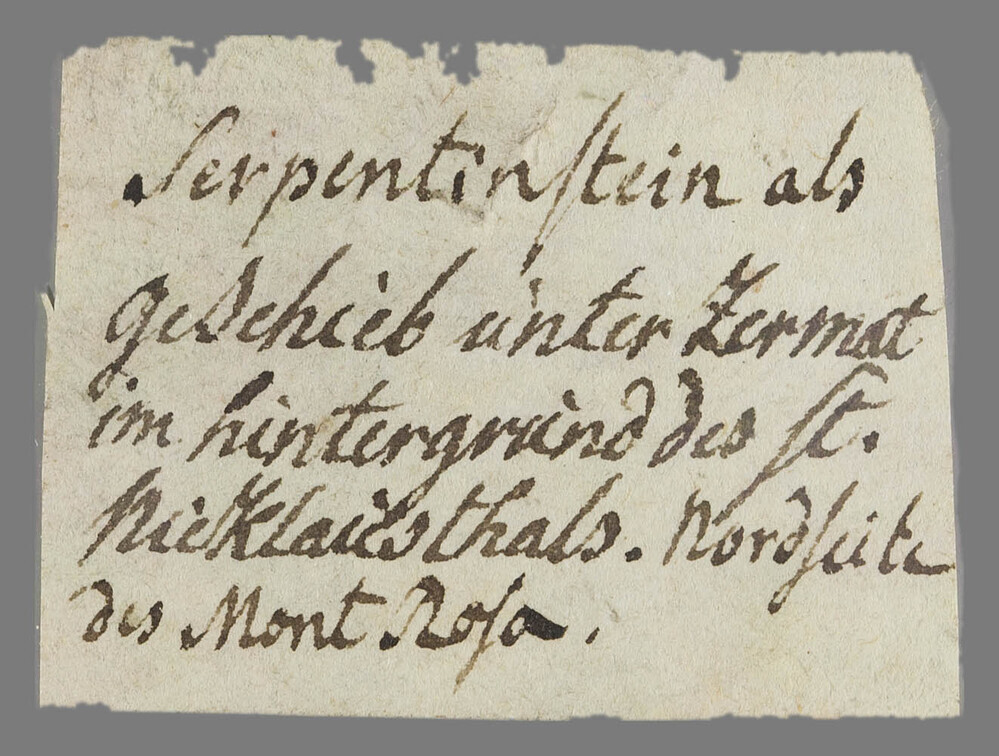 Serpentinstein als
geschieb unter Zermat
im hintergrund des st.
Nicklausthals. Nordseite
des Mont Rosa.